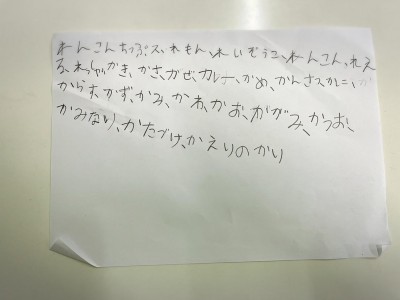 れんこんちっぷス、れもん、れいぞうこ、れんこん、れえ
る、れっしゃ、かき、かさ、かぜ、カレー、かめ、かんさス、かに、
からす、かず、かみ、かね、かお、ががみ、かつお、
かみなり、かたづけ、かえりのかり